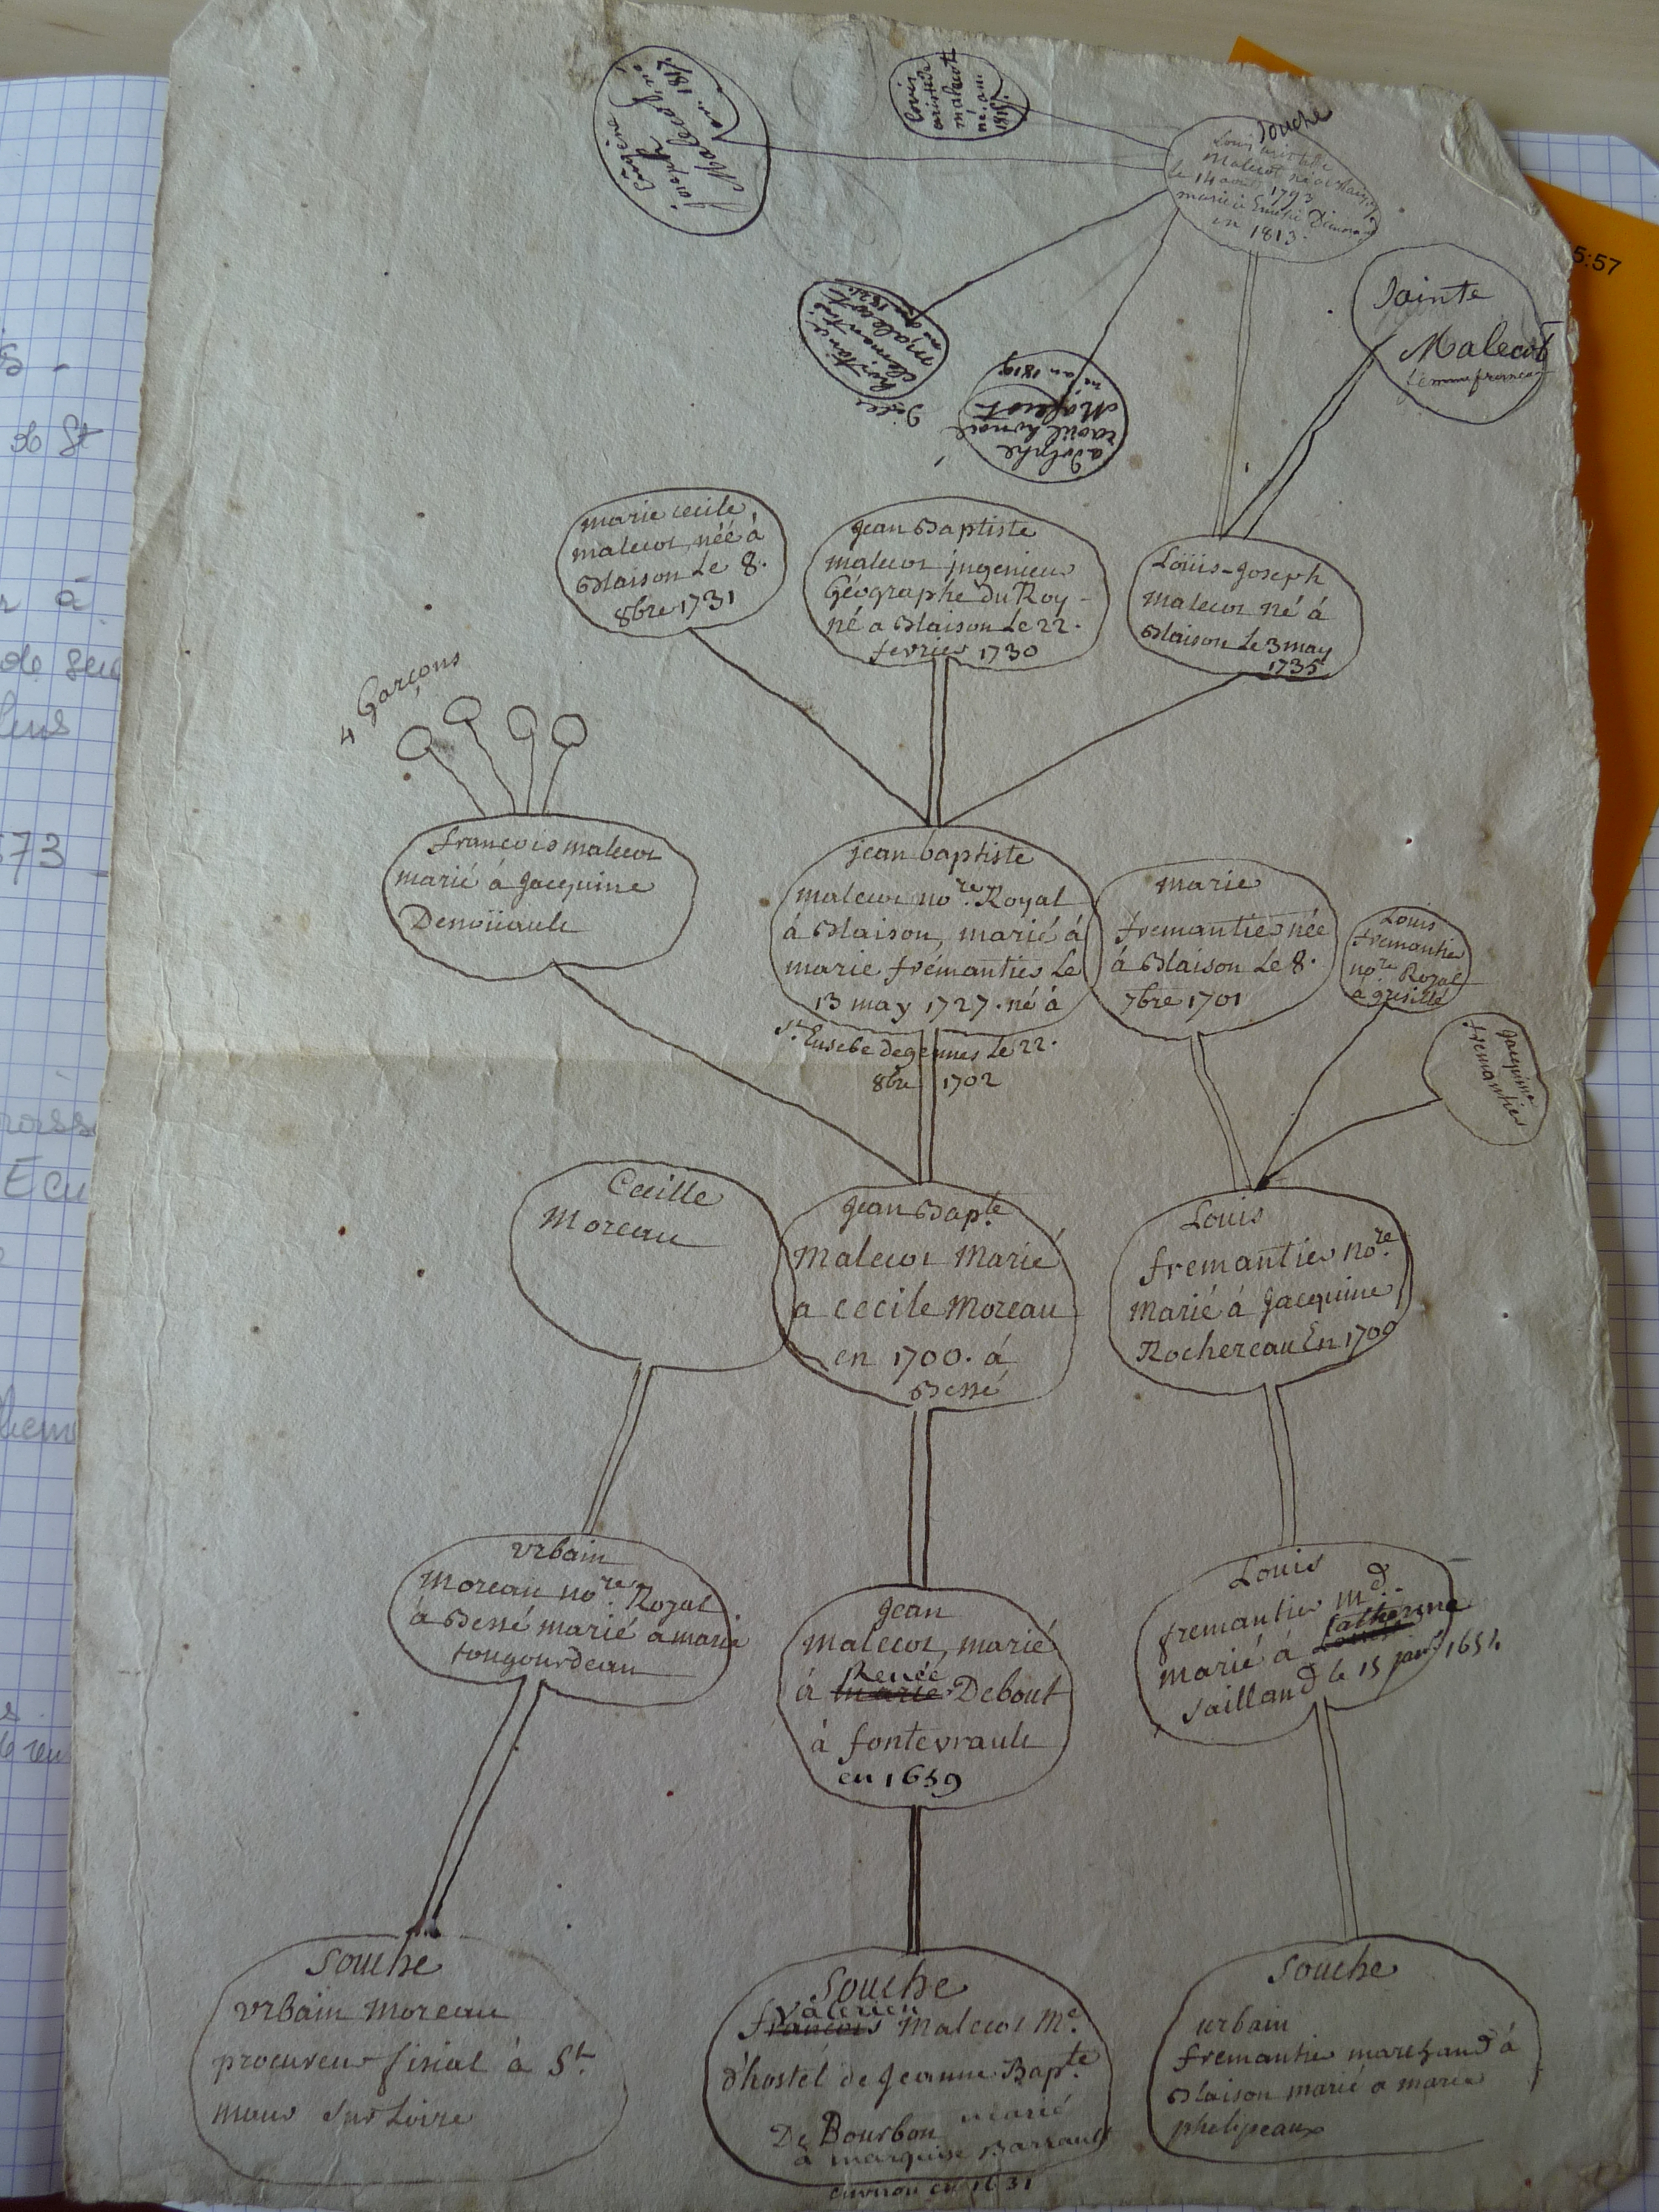 Eugene
joseph
Malecot né
en 1817
Louis
aristide
malecot
né an
1815
Souche
Louis aristide
Malecot né à Blaison
le 14 août 1793
marié à Emelie
en 1813.
5:57
Sainte
Malecot
femme
clementine
malecot
né an 1821
adolphe
raoul honoré
Malecot
né an 1819
marie cecile
malecot, néé à
Blaison Le 8.
8bre 1731
jean Baptiste
malecot jngenieur
Géographe Du Roy -
né a Blaison Le 22.
fevrier 1730
Loüis-Joseph
malecot né à
Blaison Le 3 may
1735
4 Garçons
francois malecot
marié à jacquine
Denoüault
jean baptiste
malecot no.re Royal
à Blaison, marié à
marie frémantier Le
13 may 1727. né à
St. Eusebe de gennes Le 22.
8bre 1702
marie
fremantier née
à Blaison Le 8.
7bre 1701
Louis
fremantier
no.re Royal
a gresillé
jacquine
fremantier
Cecille
Moreau
jean Bap.te
Malecot Marié
a cecile Moreau
en 1700. à
Bessé
Louis
fremantier no.re
marié à Jacquine
Rochereau En 1700
urbain
Moreau no.re Royal
à Bessé marié a marie
tougourdeau
jean
malecot, marié
Renée
à marie Debout
à fontevrault
en 1659
Louis
fremantier m.d
marié à Catherine
Sailland le 15 janv. 1654
Souche
urbain moreau
procureur fiscal à St.
maur sur Loire
Souche
Valerien
francois Malecot M.e
d'hostel de jeanne Bap.te
De Bourbon marié
à marquise Barrault
environ en 1631
Souche
urbain
fremantier marchand à
Blaison marié a marie
phelipeaux
573
de St